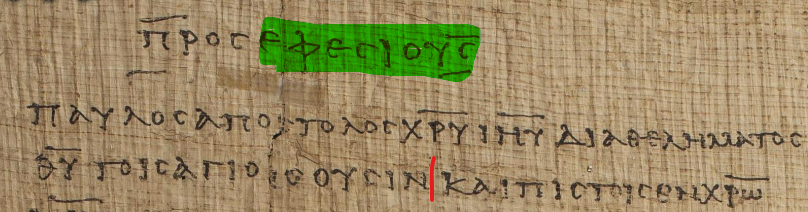 ΠΡΟϹ ΕΦΕϹΙΟΥϹ
ΠΑΥΛΟϹ ΑΠΟϹΤΟΛΟϹ ΧΡΥ ΙΗΥ ΔΙΑ ΘΕΛΗΜΑΤΟϹ
ΘΥ ΤΟΙϹ ΑΓΙΟΙϹ ΟΥϹΙΝ ΚΑΙ ΠΙϹΤΟΙϹ ΕΝ ΧΡΩ